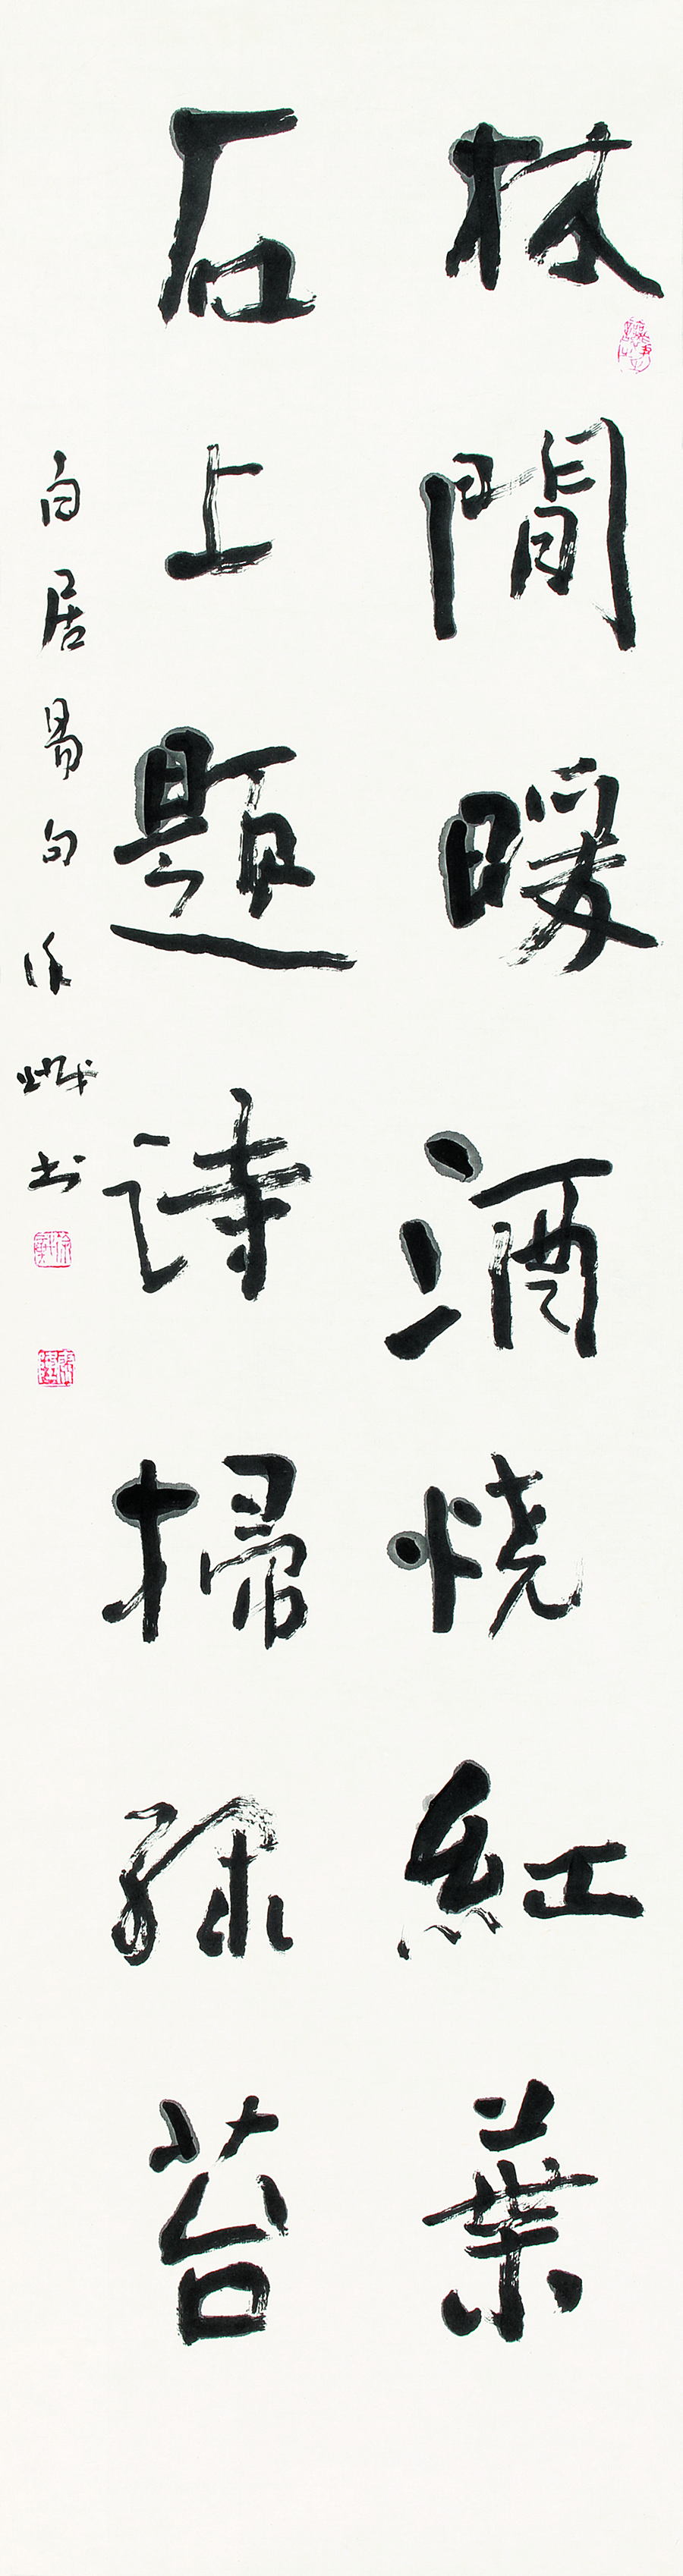 林間暖酒燒紅葉
石上題詩掃緑苔
白居易句 徐 書